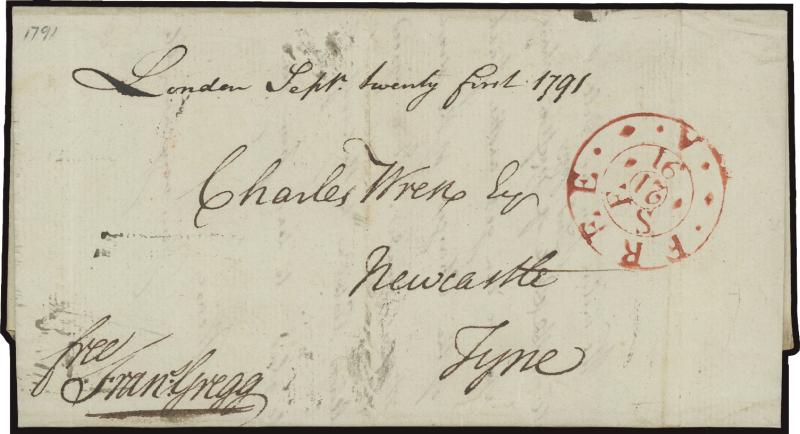 1791
London Sept. twenty first 1791
Charles Wren Esq
Newcastle
Tyne
free
Frans. Gregg
FREE A
SA
21
91